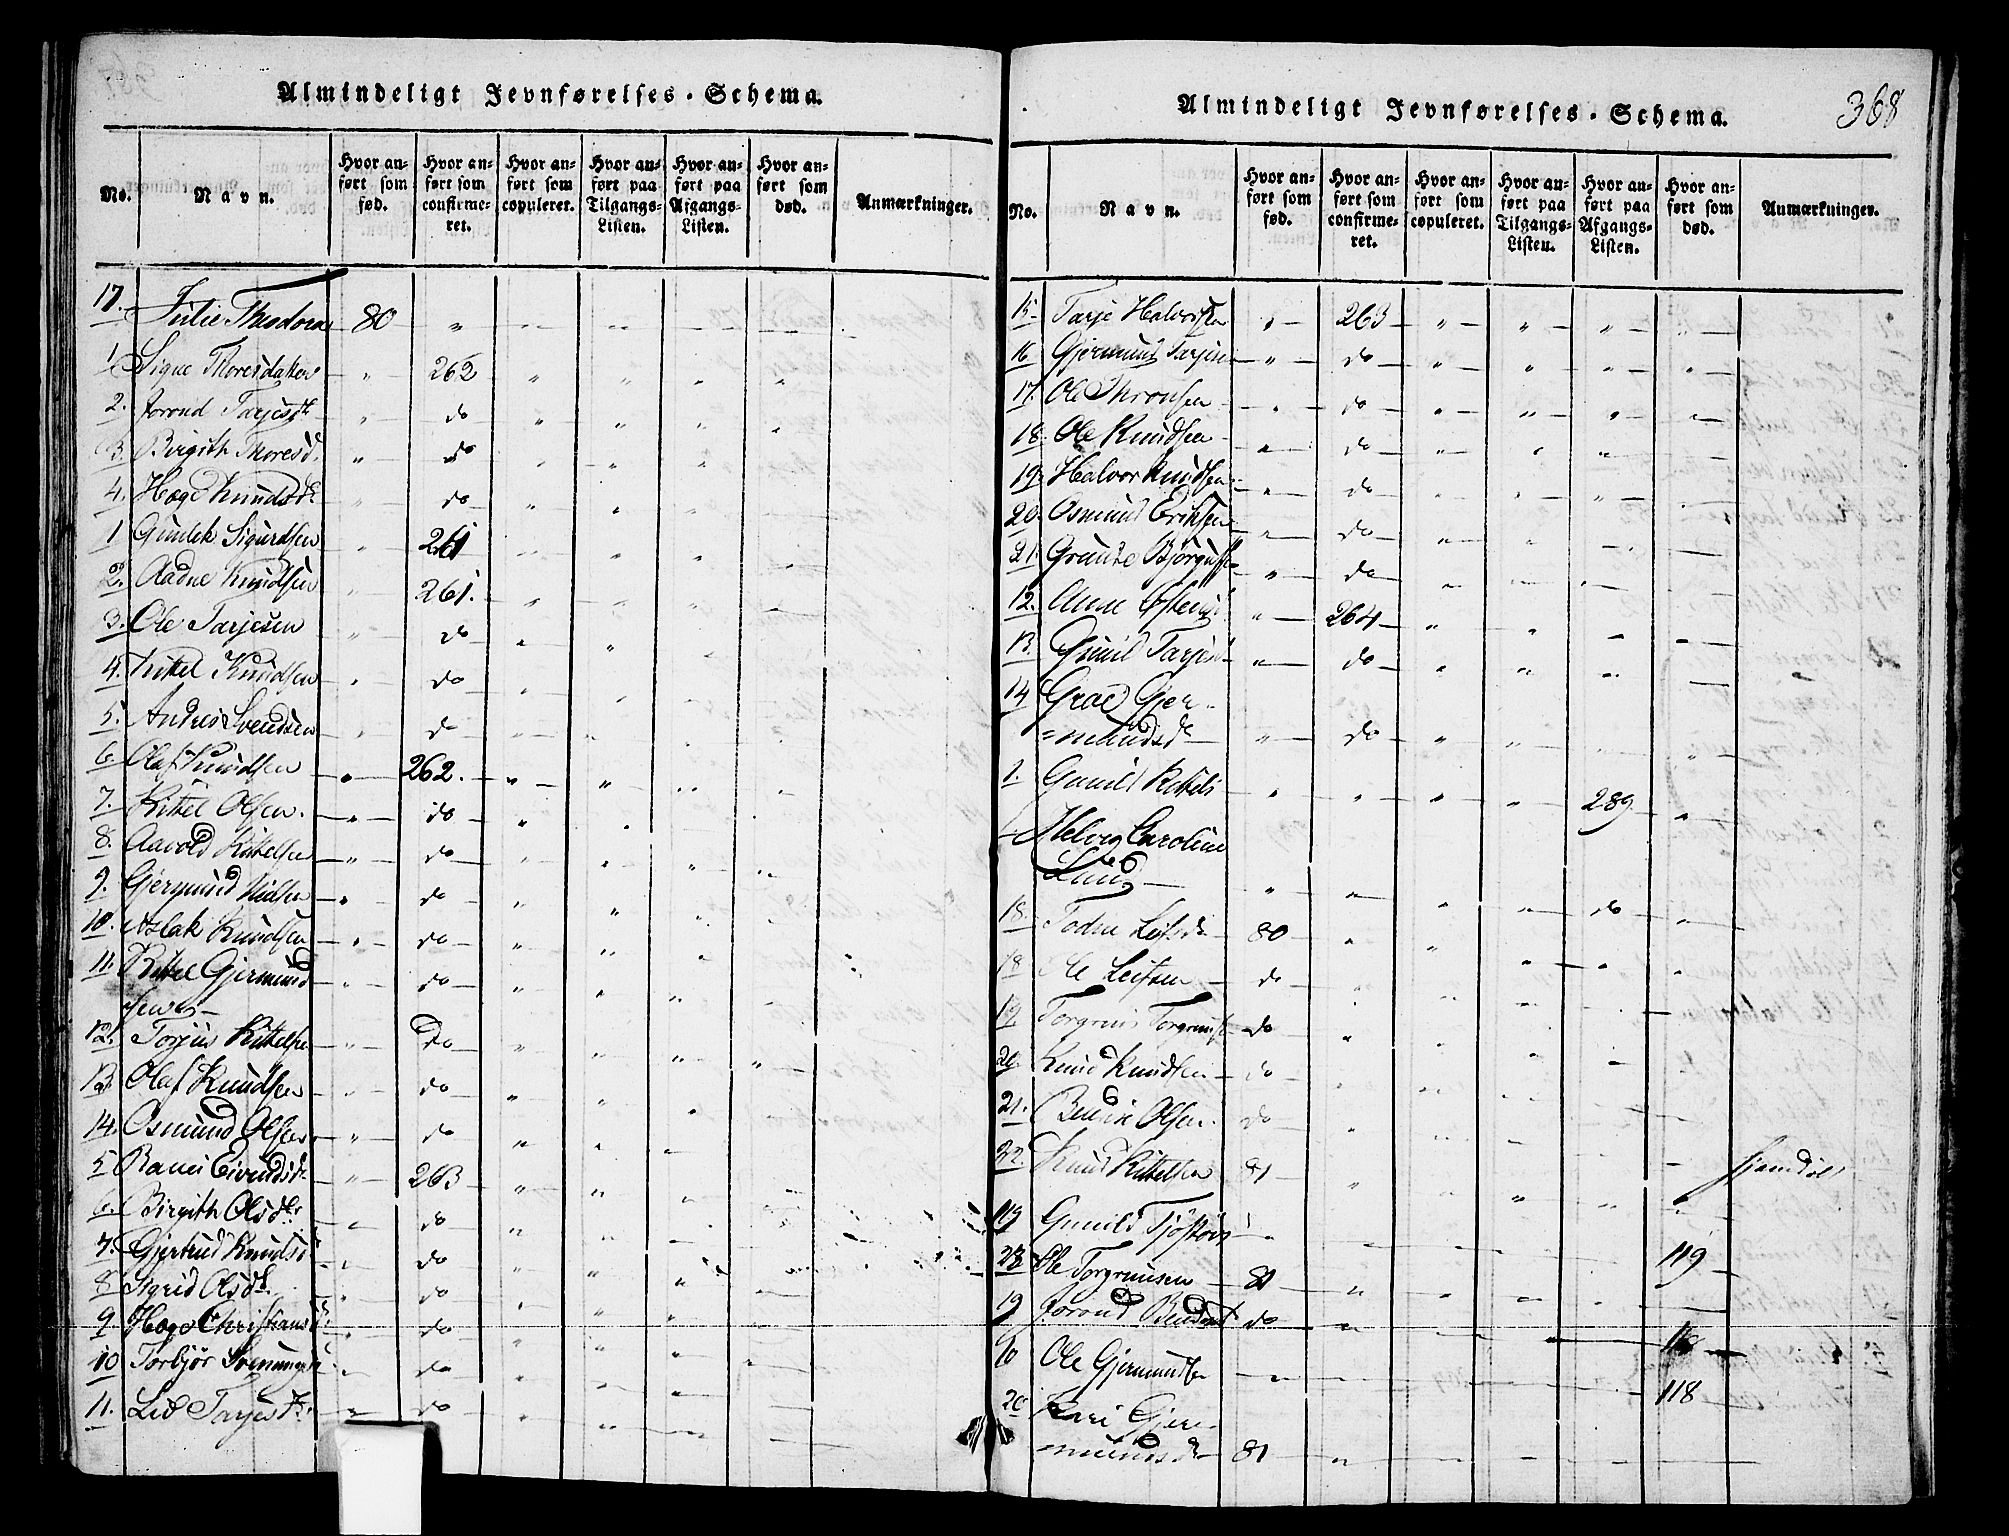 Almindeligt Jevnførelses-Schema.
No. Navn. Hvor anført som fød. Hvor anført som confirmeret. Hvor anført som copuleret. Hvor anført paa Tilgangs-Listen. Hvor anført paa Afgangs-Listen. Hvor anført som død. Anmærkninger.
17. Julie Theodora 80 " " " " "
1. Signe Thoresdatter " 262 " " " "
2. Jorond Tarjesdr " do " " " "
3. Birgith Thoresd. " do " " " "
4. Hæge Knudsdr " do " " " "
1 Gunlek Sigurdsen " 261 " " " "
2. Aadne Knudsen " 261. " " " "
3. Ole Tarjesen " do " " "
4. Kittel Knudsen " do " " "
5. Andres Svendsen " do " " "
6. Olaf Knudsen " 262. " " " "
7. Kittel Olsen. " do " "
8. Aavold Kittelsen " do " " " "
9. Gjermund Kittelsen " do " " "
10. Aslak Knudsen " do " " "
11. Kittel Gjermund
sen " do " " "
12. Torjus Kittelsen " Do " " " "
13 Olaf Knudsen " do " " "
14. Osmund Olsen " do " " "
5 Ranei Eivindsdr " 263 " " "
6. Birgith Olsdr " do " " "
7. Gjertrud Knudsd " do " " "
8 Sigrid Olsdr. " do " " "
9. Hæge Christiansd. " do " "
10 Torbjør " do " "
11. Liv Tarjesdr. " do " "
Almindeligt Jevnførelses-Schema. 368
No. Navn. Hvor anført som fød. Hvor anført som confirmeret. Hvor anført som copuleret. Hvor anført paa Tilgangs-Listen. Hvor anført paa Afgangs-Listen. Hvor anført som død. Anmærkninger.
15 Tarje Halvorsen " 263 " " " "
16 Gjermund Tarjesen " do " " " "
17. Ole Thronsen " do " " " "
18. Ole Knudsen " do " " "
19. Halvor Knudsen " do " " "
20. Osmund Eriksen " do " " "
21. Graute Bjørgufsen " do " " "
12. Anne " 264 " " " "
13. Gunil Tarjesd " do " " "
14 Groe Gjer-
=mundsdr " do " " "
1. Gunild Kittels " " " " 289. "
Helvig Caroline
Lund " " " " do "
18. Todne Leifsdr 80 " "
18 Ole Leifsen do " " "
19 Torgrim Torgrimsen do "
20. Knud Knudsen do
21. Bendix Olsen. do "
22 Knud Kittelsen 81 " "
119 Gunild Tjøstøvs " 119
23 Ole Torgrimsen 81 " "
19 Jorond Bendixdr do "
10 Ole Gjermundsen " 118
20 Kari Gjer-
=mundsdr 81 " " " "